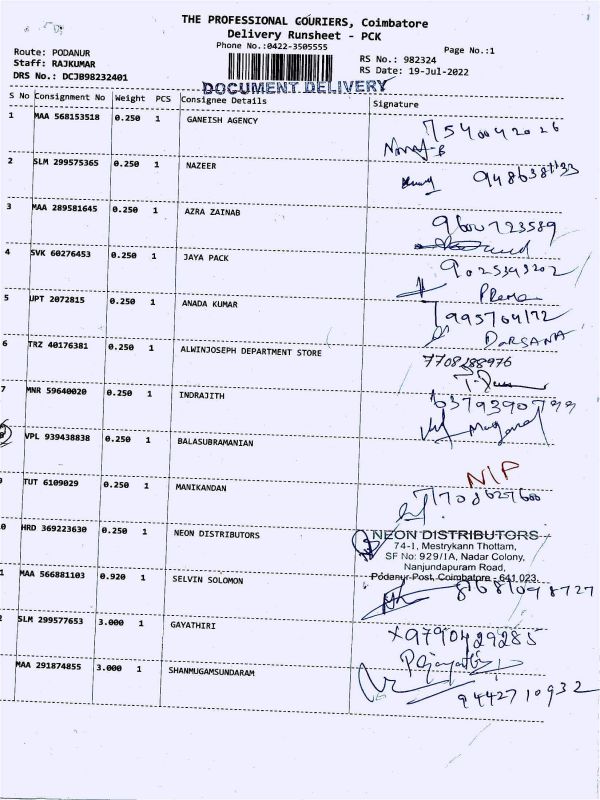 THE PROFESSIONAL COURIERS, Coimbatore
Delivery Runsheet - PCK
Phone No.:0422-3505555
Page No.:1
Route: PODANUR
Staff: RAJKUMAR
DRS No.: DCJB98232401
RS No.: 982324
RS Date: 19-Jul-2022
DOCUMENT DELIVERY
S No Consignment No Weight PCS Consignee Details Signature
1 MAA 568153518 0.250 1 GANEISH AGENCY 7540042026
2 SLM 299575365 0.250 1 NAZEER
3 MAA 289581645 0.250 1 AZRA ZAINAB 9600723589
4 SVK 60276453 0.250 1 JAYA PACK 9025393202
Prema
5 UPT 2072815 0.250 1 ANADA KUMAR
DARSANA
6 TRZ 40176381 0.250 1 ALWINJOSEPH DEPARTMENT STORE 7708288976
7 MNR 59640020 0.250 1 INDRAJITH
8 VPL 939438838 0.250 1 BALASUBRAMANIAN
N/P
9 TUT 6109029 0.250 1 MANIKANDAN
0 HRD 369223630 0.250 1 NEON DISTRIBUTORS
NEON DISTRIBUTORS
74-1, Mestrykann Thottam,
SF No: 929/1A, Nadar Colony,
Nanjundapuram Road,
Podanur Post, Coimbatore - 641 023.
1 MAA 566881103 0.920 1 SELVIN SOLOMON
2 SLM 299577653 3.000 1 GAYATHIRI 9790429285
MAA 291874855 3.000 1 SHANMUGAMSUNDARAM
9442710932